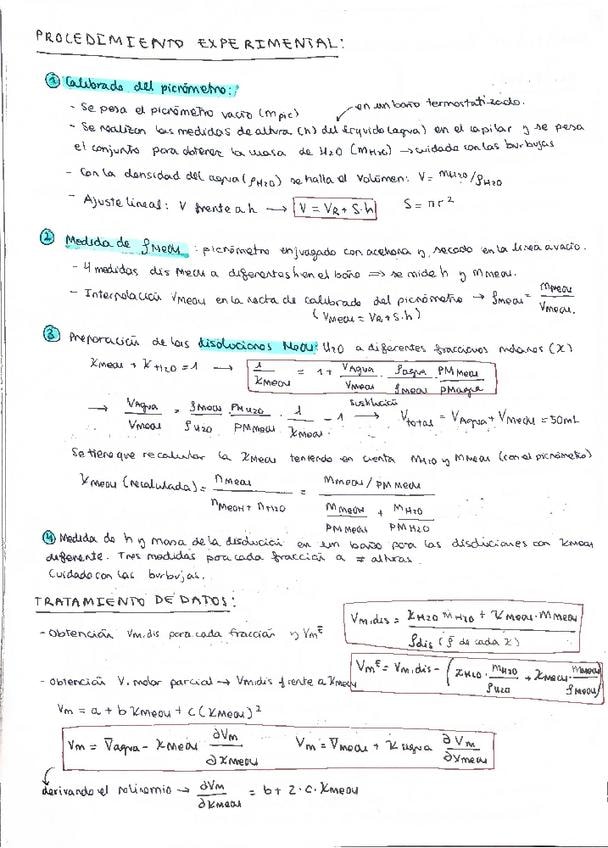 PROCEDIMIENTO EXPERIMENTAL:
① Calibrado del picnómetro:
- Se pesa el picnómetro vacío (mpic)
en un baño termostatizado.
- Se realizan las medidas de altura (h) del líquido (agua) en el capilar y se pesa
el conjunto para obtener la masa de H2O (mH2O) → cuidado con las burbujas
- Con la densidad del agua (ρH2O) se halla el volumen: V = mH2O/ρH2O
- Ajuste lineal: V frente a h → V = VR + S·h S = πr²
② Medida de ρMeOH: picnómetro enjuagado con acetona y secado en la línea a vacío.
- 4 medidas dis MeOH a diferentes h en el baño ⇒ se mide h y mMeOH.
- Interpolación VMeOH en la recta de calibrado del picnómetro → ρMeOH = mMeOH / VMeOH.
(VMeOH = VR + S·h)
③ Preparación de las disoluciones MeOH: H2O a diferentes fracciones molares (X)
XMeOH + XH2O = 1 → 1/XMeOH = 1 + VAgua/VMeOH · ρagua/ρMeOH · PMMeOH/PMagua
→ VAgua/VMeOH = ρMeOH/ρH2O · PMH2O/PMMeOH · 1/XMeOH - 1 sustitución → Vtotal = VAgua + VMeOH = 50mL
Se tiene que recalcular la XMeOH teniendo en cuenta mH2O y mMeOH (con el picnómetro)
XMeOH (recalculada) = nMeOH / (nMeOH + nH2O) = (mMeOH/PMMeOH) / (mMeOH/PMMeOH + mH2O/PMH2O)
④ Medida de h y masa de la disolución en un baño para las disoluciones con XMeOH
diferente. Tres medidas para cada fracción a ≠ alturas.
Cuidado con las burbujas.
TRATAMIENTO DE DATOS:
- Obtención Vm,dis para cada fracción y VmE
Vm,dis = (XH2O MH2O + XMeOH · MMeOH) / ρdis (ρ̄ de cada X)
VmE = Vm,dis - (XH2O · MH2O/ρH2O + XMeOH · MMeOH/ρMeOH)
- Obtención V. molar parcial → Vm,dis frente a XMeOH
Vm = a + b XMeOH + c (XMeOH)²
Vm = V̄agua - XMeOH ∂Vm/∂XMeOH Vm = V̄MeOH + X agua ∂Vm/∂XMeOH
derivando el polinomio → ∂Vm/∂XMeOH = b + 2·c·XMeOH